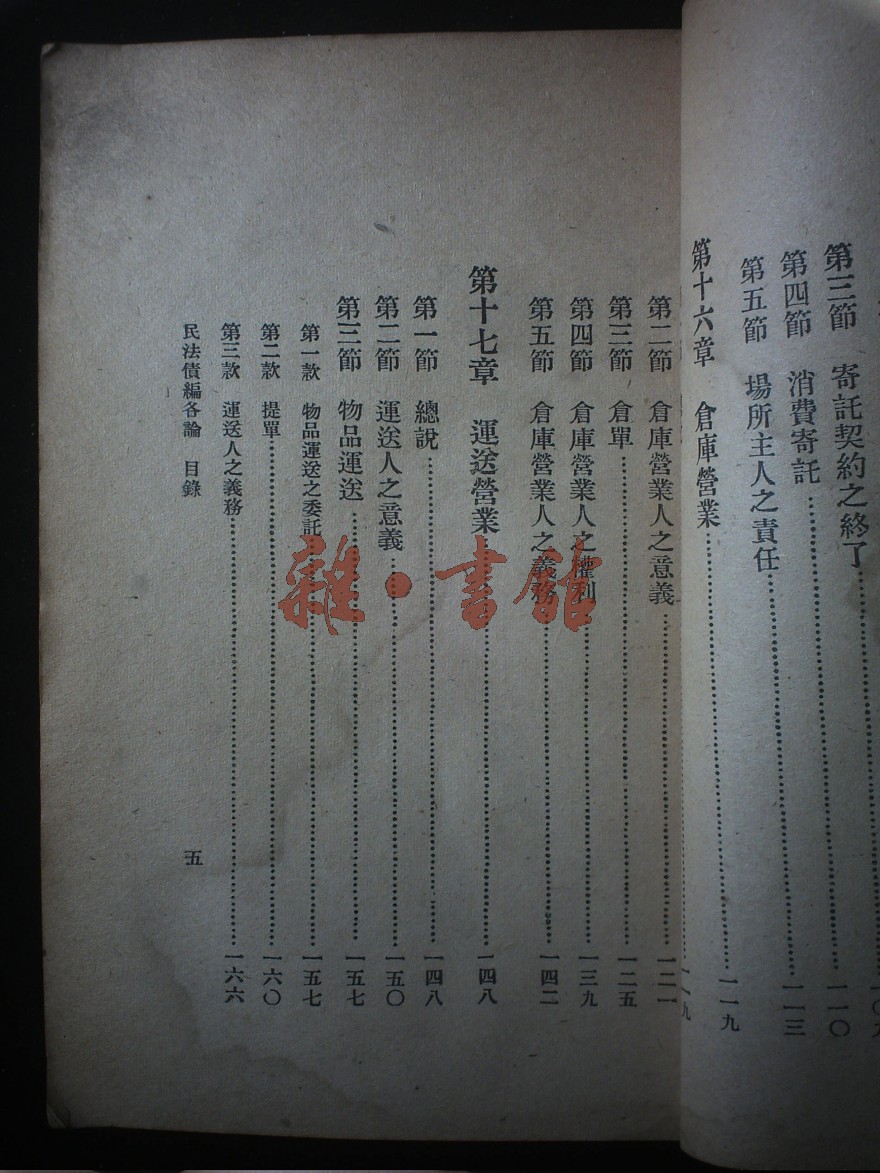 第三節 寄託契約之終了……一〇九
第四節 消費寄託……一一〇
第五節 場所主人之責任……一一三
第十六章 倉庫營業……一一九
第二節 倉庫營業人之意義……一二一
第三節 倉單……一二五
第四節 倉庫營業人之權利……一三九
第五節 倉庫營業人之義務……一四二
第十七章 運送營業……一四八
第一節 總說……一四八
第二節 運送人之意義……一五〇
第三節 物品運送……一五七
第一款 物品運送之委託……一五七
第二款 提單……一六〇
第三款 運送人之義務……一六六
民法債編各論 目錄 五
雜·書館